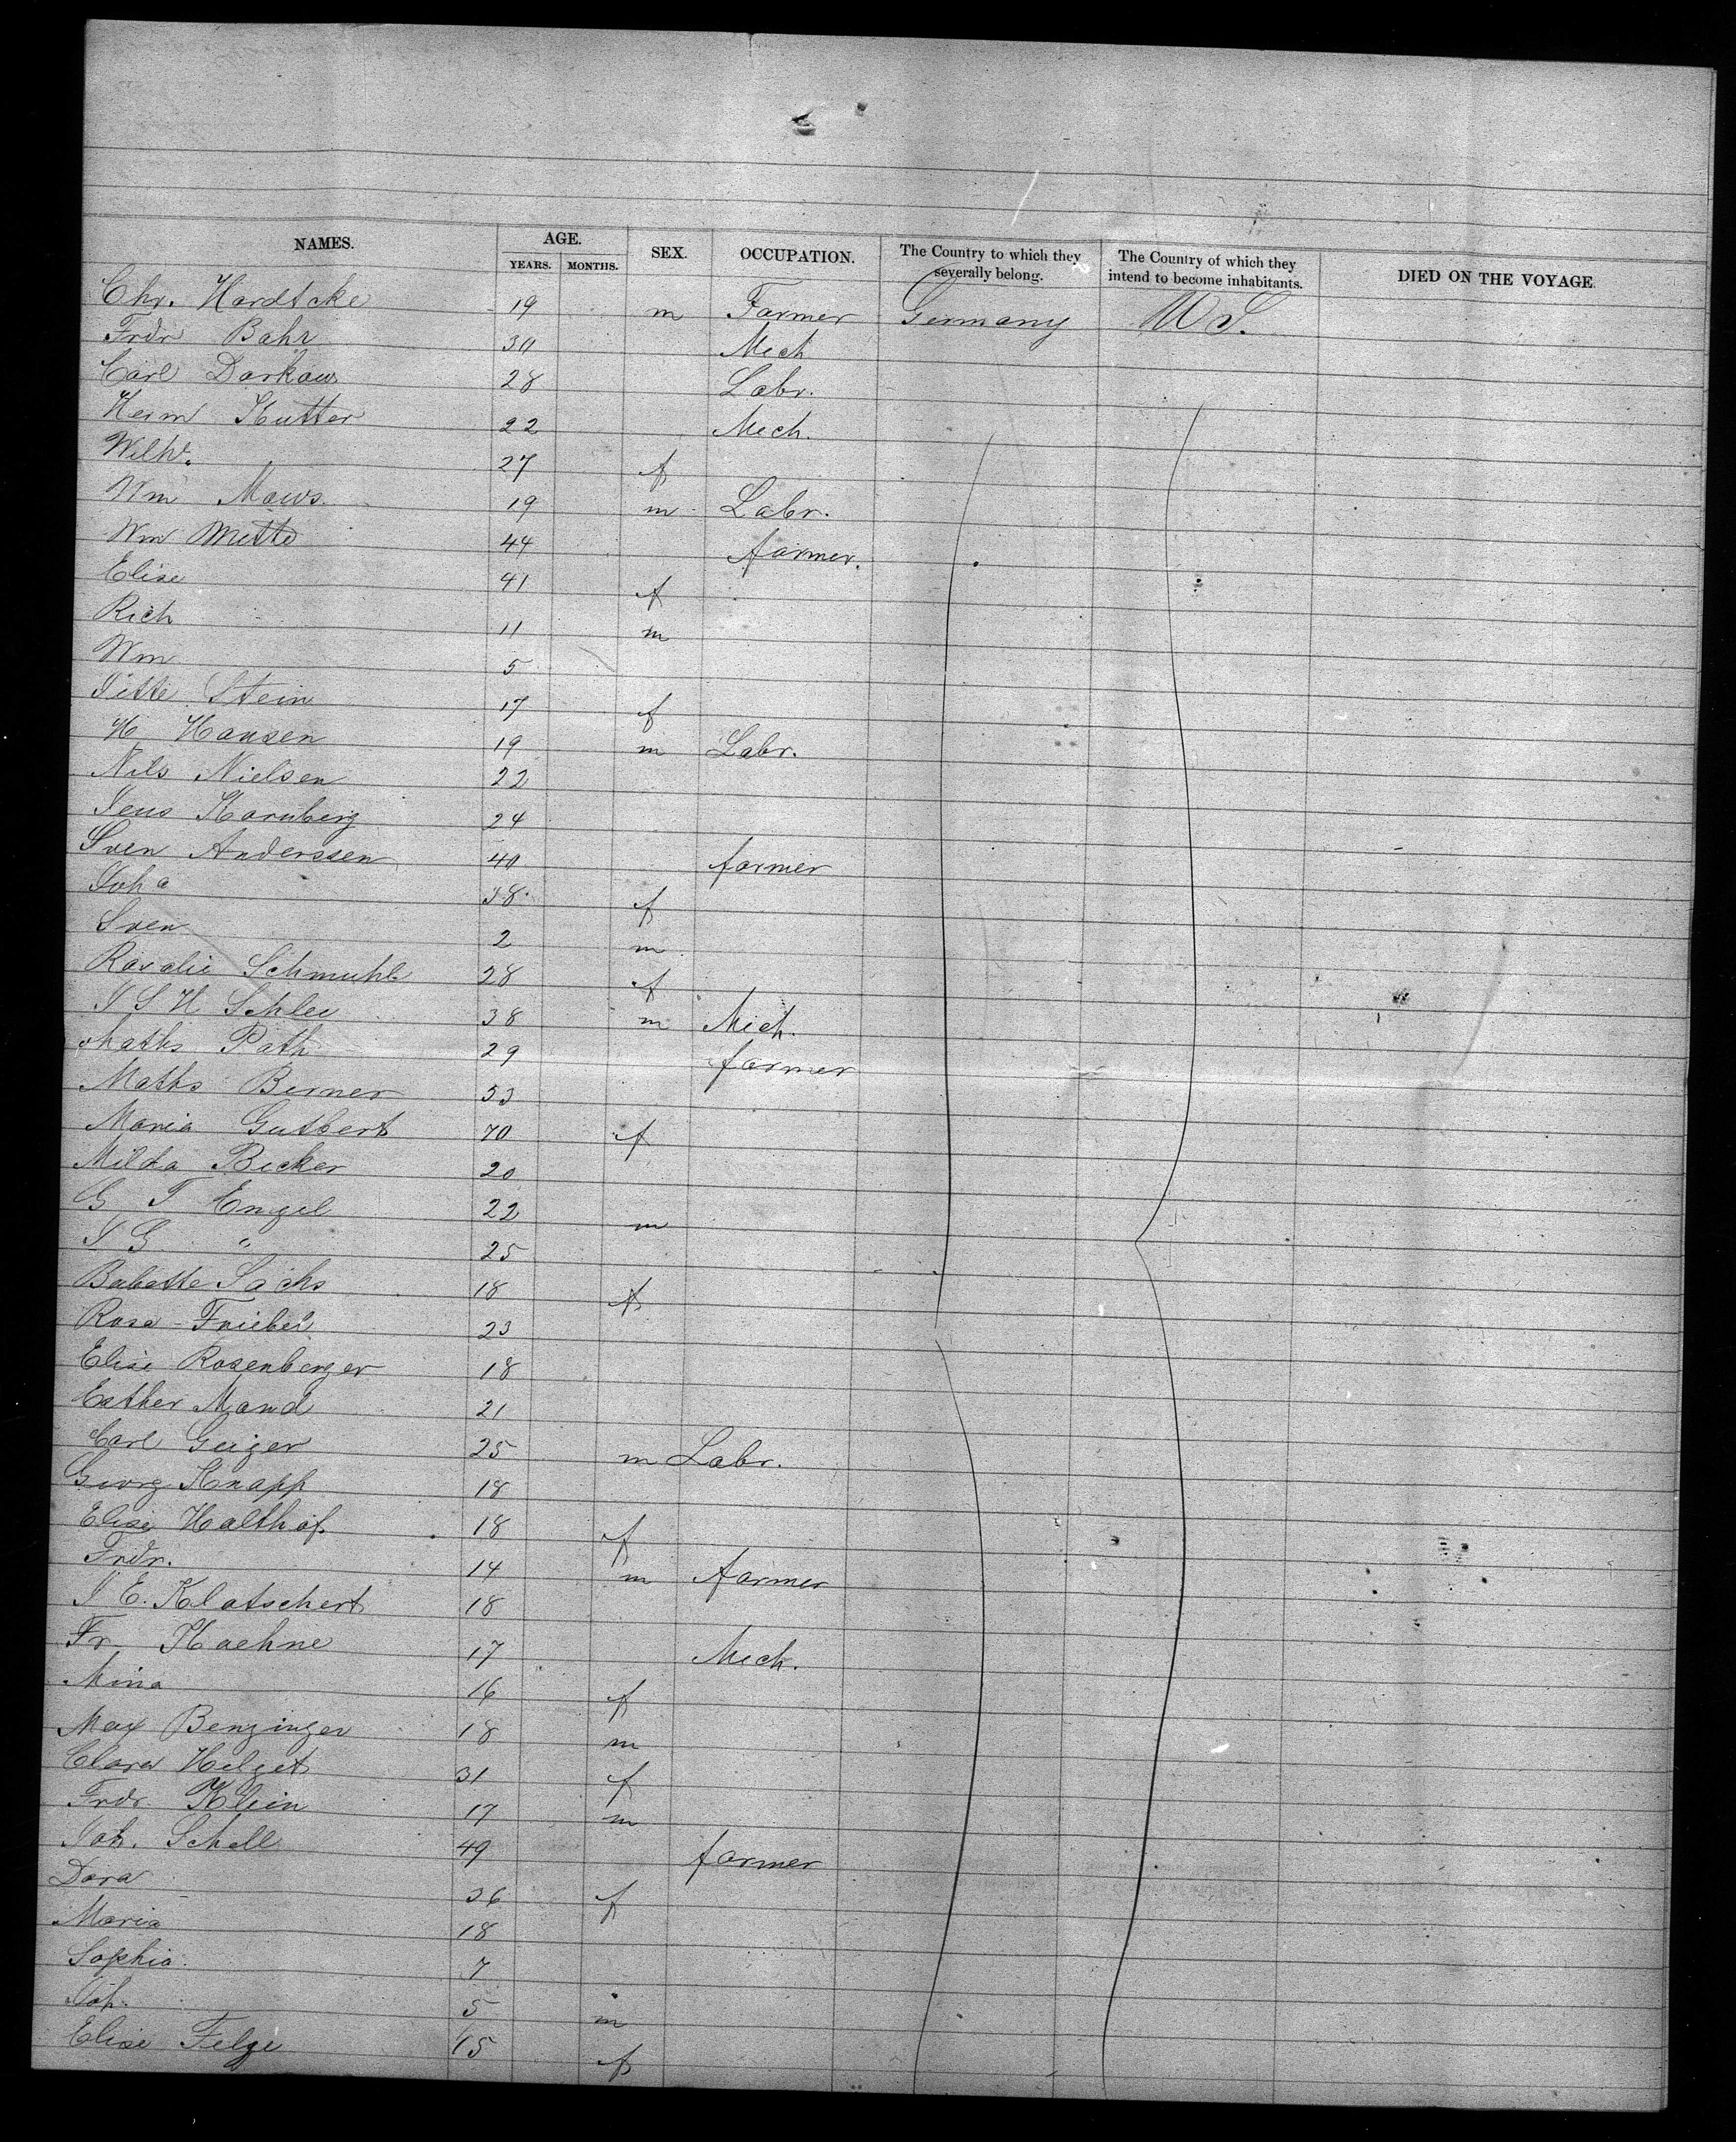 NAMES. AGE. SEX. OCCUPATION. The Country to which they severally belong. The Country of which they intend to become inhabitants. DIED ON THE VOYAGE.
YEARS. MONTHS.
Chr. Hardtcke 19 m Farmer Germany U S.
Frdr Bahr 30 Mech
Carl Darkow 28 Labr.
Herm Kutter 22 Mech.
Wilhe. 27 f
Wm Maws 19 m Labr.
Wm Mette 44 farmer.
Elise 41 f
Rich 11 m
Wm 5
Jitte Stein 17 f
H Hansen 19 m Labr.
Nils Nielsen 22
Jens Kornberg 24
Sven Anderssen 40 farmer
Joha 38 f
Sven 2 m
Rosalie Schmuhl 28 f
J S H Schlee 38 m Mech.
Maths Path 29 farmer
Maths Berner 53
Maria Gutbert 70 f
Milda Becker 20
G F Engel 22 m
J G " 25
Babette Sachs 18 f
Rosa Friebel 23
Elise Rosenberger 18
Esther Mand 21
Carl Geiger 25 m Labr.
Georg Knapp 18
Elise Halthof 18 f
Frdr. 14 m farmer
J E. Klatschert 18
Fr Kaehne 17 Mech.
Mina 16 f
Max Benzinger 18 m
Clara Helget 31 f
Frdr Klein 17 m
Joh. Schell 49 farmer
Dora 36 f
Maria 18
Sophia 7
Joh. 5 m
Elise Felge 15 f